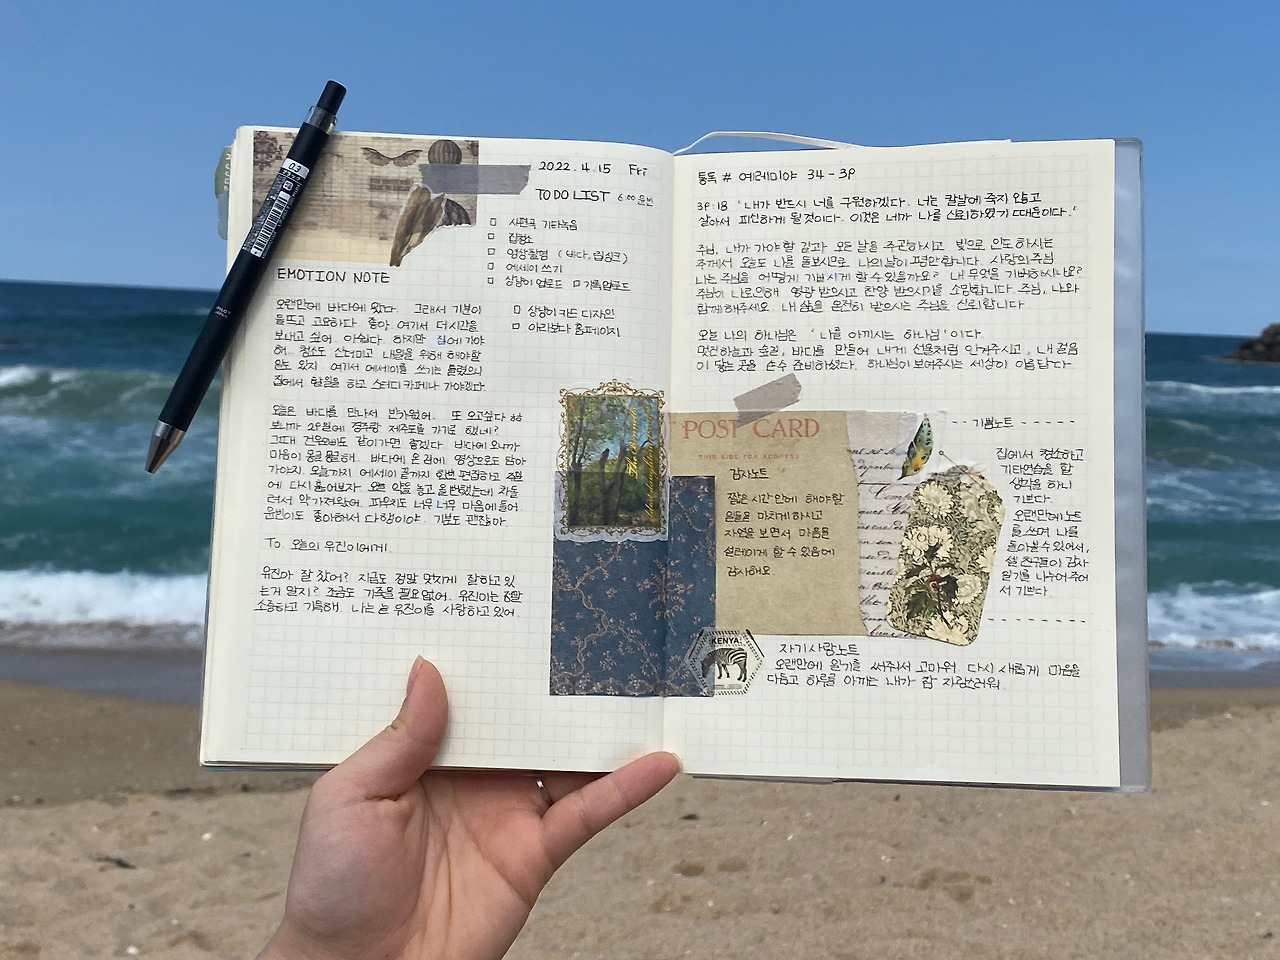 0.3
PILOT
2022. 4. 15 Fri
TO DO LIST 6:00 운반
집청소
영상촬영 (바다, 립싱크)
에세이 쓰기
상냥이 업로드 기록업로드
상냥이 카드 디자인
아리보다 홈페이지
EMOTION NOTE
오랜만에 바다에 왔다. 그래서 기분이
들뜨고 고요하다. 좋아. 여기서 더 시간을
보내고 싶어. 아쉽다. 하지만 집에 가야
해. 청소도 산더미고 내일을 위해 해야할
일도 있지. 여기서 에세이를 쓰기는 틀렸으니
집에서 할일을 하고 스터디 카페나 가야겠다.
오늘은 바다를 만나서 반가웠어. 또 오고싶다
보니까 28일에 경주랑 제주도를 가기로 했네?
그때 건우오빠도 같이가면 좋겠다. 바다에 오니까
마음이 몽글몽글해. 바다에 온 김에 영상으로도 담아
가야지. 오늘까지 에세이 끝까지 한번 편집하고 주말
에 다시 훑어보자.
려서 약 가져왔어. 파우치도 너무 너무 마음에 들어.
윤빈이도 좋아해서 다행이야. 기분도 괜찮아.
To. 오늘의 유진이에게.
유진아 잘 잤어? 지금도 정말 멋지게 잘하고 있
는거 알지? 조금도 기죽을 필요 없어. 유진이는 정말
소중하고 기특해. 나는 늘 유진이를 사랑하고 있어.
통독 # 예레미야 34 - 39
39:18 "내가 반드시 너를 구원하겠다. 너는 칼날에 죽지 않고
살아서 피신하게 될 것이다. 이것은 네가 나를 신뢰하였기 때문이다."
주님, 내가 가야 할 길과 모든 날을 주관하시고 빛으로 인도 하시는
주께서 오늘도 나를 돌보시므로 나의 날이 평안합니다. 사랑의 주님
나는 주님을 어떻게 기쁘시게 할 수 있을까요? 내 무엇을 기뻐하시나요?
주님이 나로인해 영광 받으시고 찬양 받으시기를 소망합니다. 주님, 나와
함께 해주세요. 내 삶을 온전히 받으시는 주님을 신뢰합니다.
오늘 나의 하나님은 '나를 아끼시는 하나님'이다.
멋진 하늘과 숲길, 바다를 만들어 내게 선물처럼 안겨주시고, 내 걸음
이 닿는 곳을 손수 준비하셨다. 하나님이 보여주시는 세상이 아름답다.
POST CARD
THIS SIDE FOR ADDRESS
감사노트
짧은 시간 안에 해야할
일들을 마치게 하시고
자연을 보면서 마음을
설레이게 할 수 있음에
감사해요.
기쁨노트
집에서 청소하고
기타연습을 할
생각을 하니
기쁘다.
오랜만에 노트
를 쓰며 나를
돌아볼 수 있어서,
셀 친구들이 감사
일기를 나누어 주어
서 기쁘다.
KENYA
자기사랑노트
오랜만에 일기를 써줘서 고마워. 다시 새롭게 마음을
다듬고 하루를 아끼는 내가 참 자랑스러워.